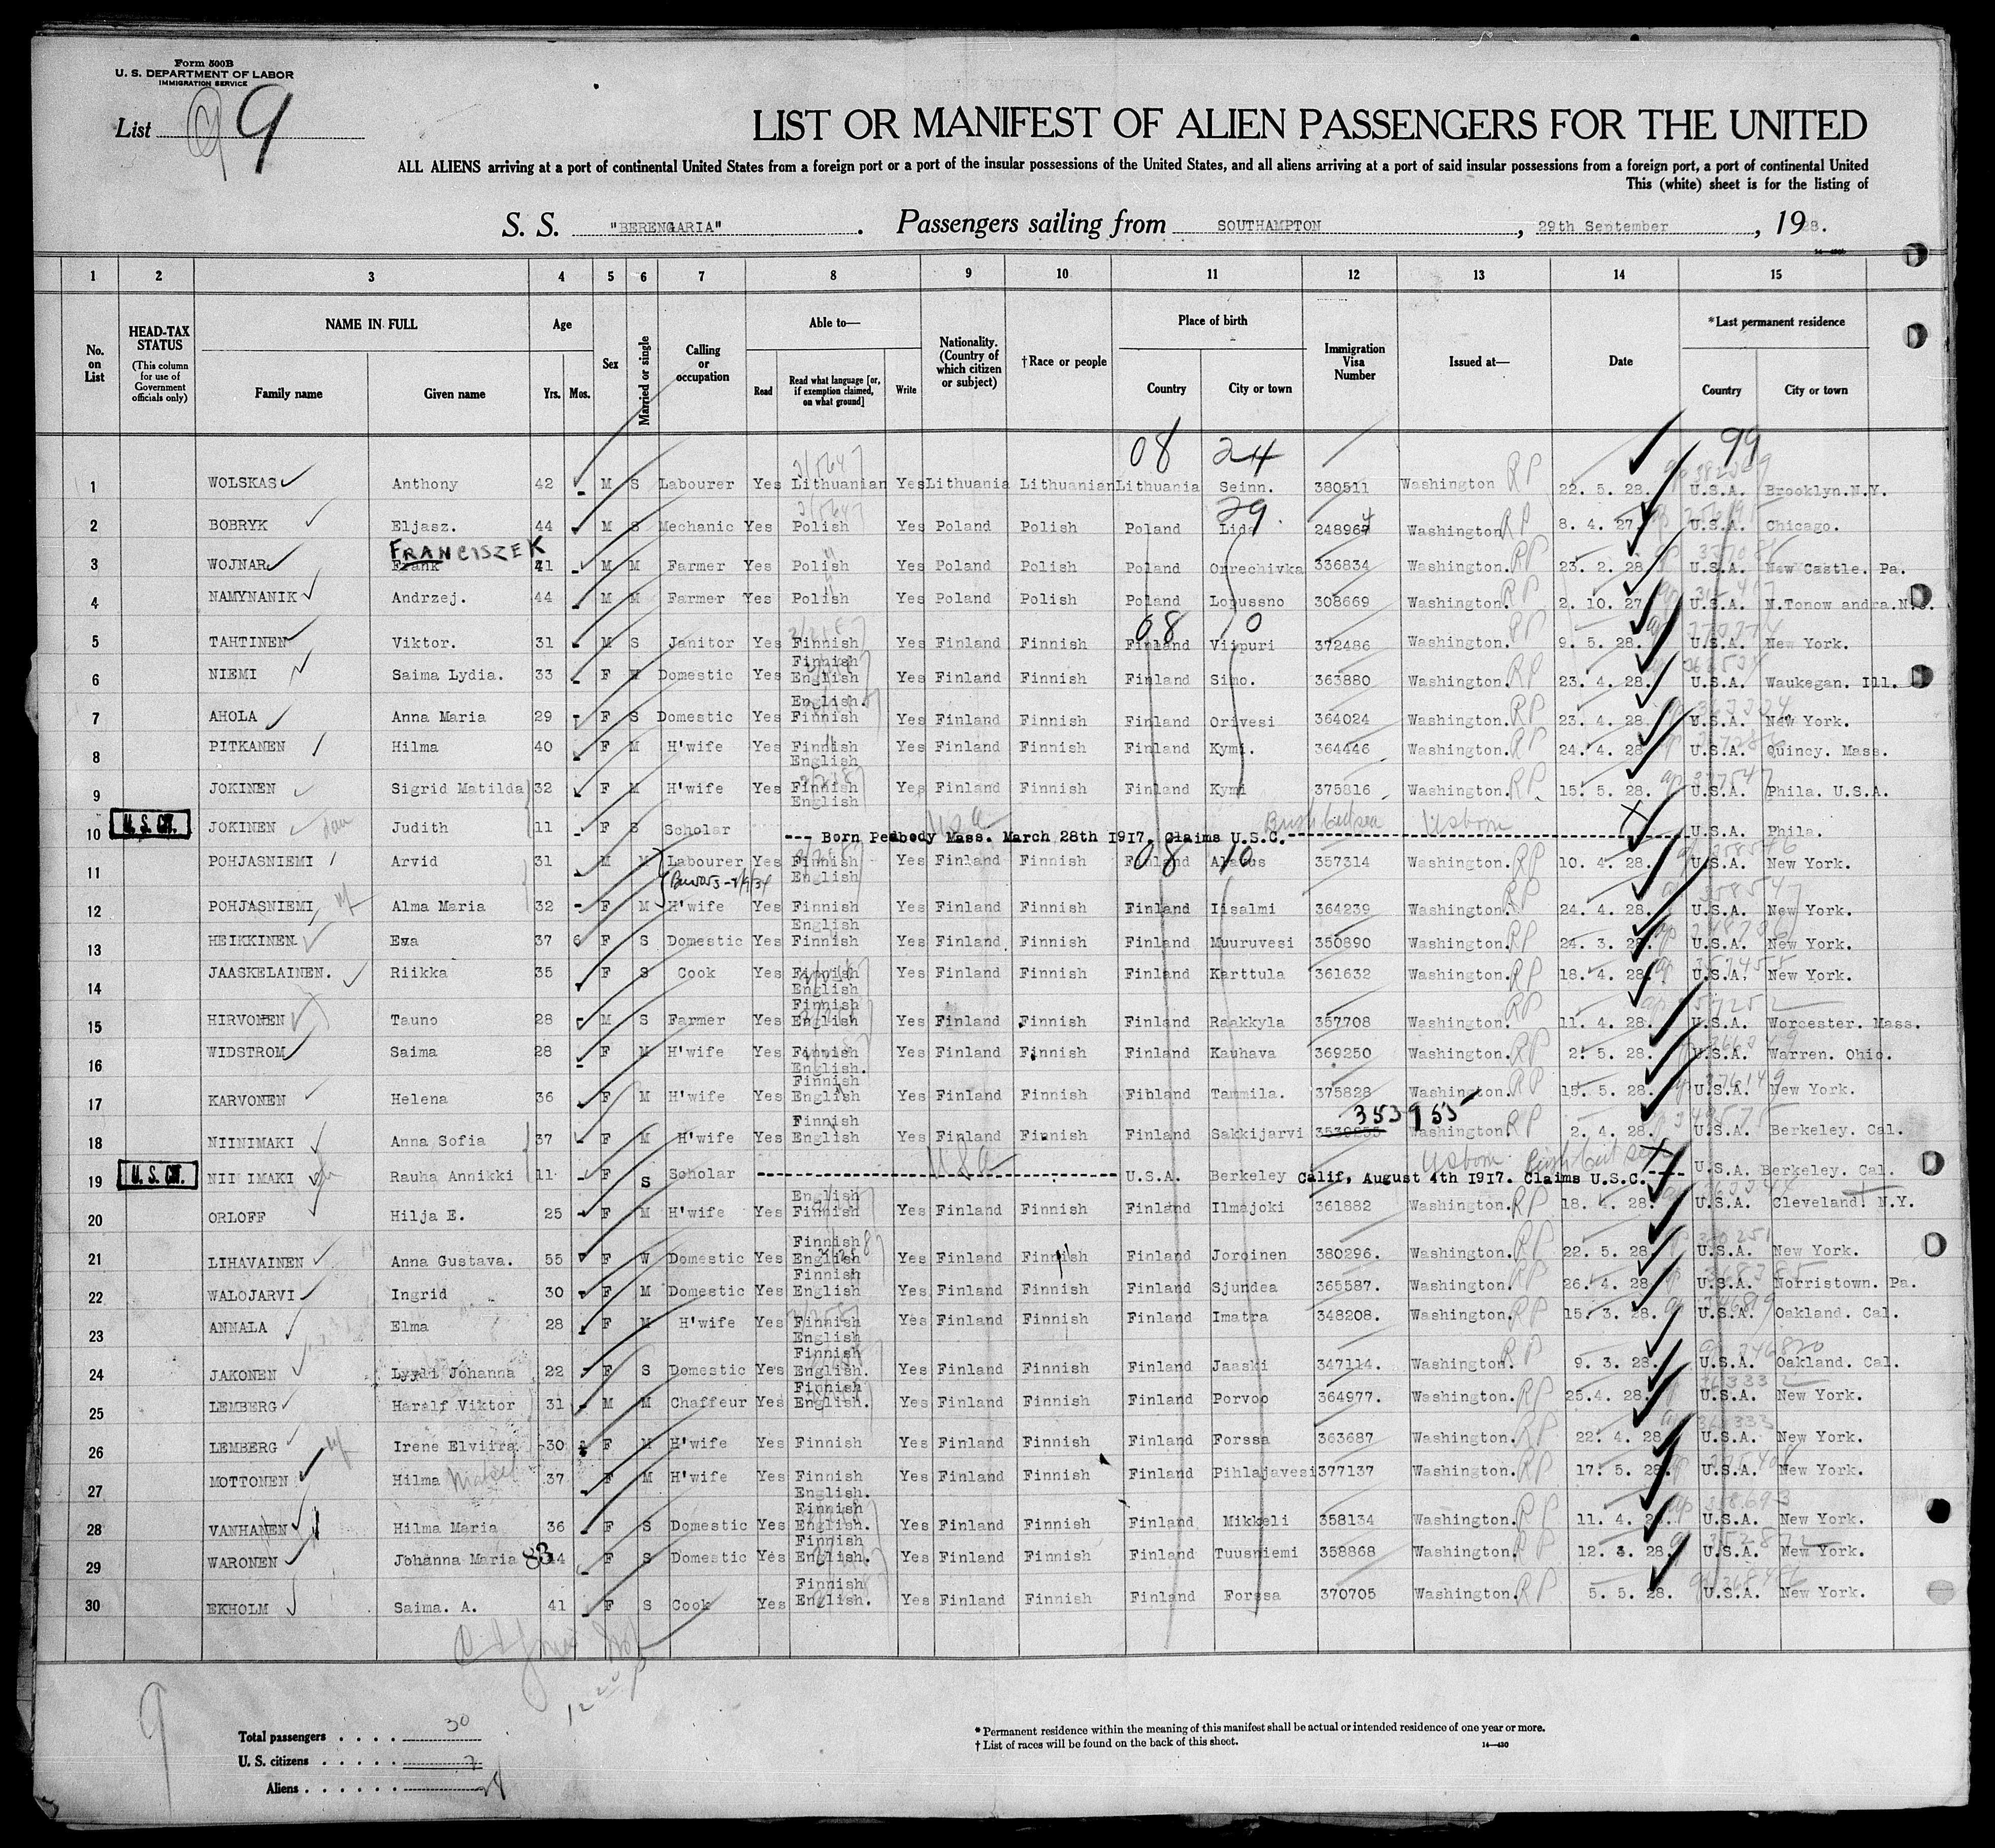 Form 500B
U. S. DEPARTMENT OF LABOR
IMMIGRATION SERVICE
List 9 9
LIST OR MANIFEST OF ALIEN PASSENGERS FOR THE UNITED
ALL ALIENS arriving at a port of continental United States from a foreign port or a port of the insular possessions of the United States, and all aliens arriving at a port of said insular possessions from a foreign port, a port of continental United
This (white) sheet is for the listing of
S. S. "BERENGARIA". Passengers sailing from SOUTHAMPTON, 29th September, 1928.
1 2 3 4 5 6 7 8 9 10 11 12 13 14 15
No. on List HEAD-TAX STATUS (This column for use of Government officials only) NAME IN FULL Family name Given name Age Yrs. Mos. Sex Married or single Calling or occupation Able to— Read Read what language [or, if exemption claimed, on what ground] Write Nationality. (Country of which citizen or subject) †Race or people Place of birth Country City or town Immigration Visa Number Issued at— Date *Last permanent residence Country City or town
08 24 99
1 WOLSKAS Anthony 42 M S Labourer Yes Lithuanian Yes Lithuania Lithuanian Lithuania Seinn. 380511 Washington RP 22. 5. 28. U.S.A. Brooklyn.N.Y.
29
2 BOBRYK Eljasz. 44 M S Mechanic Yes Polish Yes Poland Polish Poland Lida 248964 Washington RP 8. 4. 27. U.S.A. Chicago.
FRANCISZEK
3 WOJNAR Frank 41 M M Farmer Yes Polish Yes Poland Polish Poland Orrechivka 336834 Washington. RP 23. 2. 28. U.S.A. New Castle. Pa.
4 NAMYNANIK Andrzej. 44 M M Farmer Yes Polish Yes Poland Polish Poland Lopussno 308669 Washington. RP 2. 10. 27. U.S.A. N.Tonow andra.N.J.
08 0
5 TAHTINEN Viktor. 31 M S Janitor Yes Finnish Yes Finland Finnish Finland Viipuri 372486 Washington. RP 9. 5. 28. U.S.A. New York.
6 NIEMI Saima Lydia. 33 F M Domestic Yes Finnish English Yes Finland Finnish Finland Simo. 363880 Washington. RP 23. 4. 28. U.S.A. Waukegan. Ill.
7 AHOLA Anna Maria 29 F S Domestic Yes English. Finnish Yes Finland Finnish Finland Orivesi 364024 Washington. RP 23. 4. 28. U.S.A. New York.
8 PITKANEN Hilma 40 F M H'wife Yes Finnish English Yes Finland Finnish Finland Kymi. 364446 Washington. RP 24. 4. 28 U.S.A. Quincy. Mass.
9 JOKINEN Sigrid Matilda 32 F M H'wife Yes Finnish English Yes Finland Finnish Finland Kymi 375816 Washington. RP 15. 5. 28. U.S.A. Phila. U.S.A.
10 U. S. CIT. JOKINEN dau Judith 11 F S Scholar --- Born Peabody Mass. March 28th 1917. Claims U.S.C. USA U.S.A. Phila.
08 10
11 POHJASNIEMI Arvid 31 M M Labourer Yes Finnish English Yes Finland Finnish Finland Alavus 357314 Washington. RP 10. 4. 28. U.S.A. New York.
12 POHJASNIEMI Alma Maria 32 F M H'wife Yes Finnish English Yes Finland Finnish Finland Iisalmi 364239 Washington. RP 24. 4. 28. U.S.A. New York.
13 HEIKKINEN Ewa 37 6 F S Domestic Yes Finnish Yes Finland Finnish Finland Muuruvesi 350890 Washington. RP 24. 3. 28. U.S.A. New York.
14 JAASKELAINEN. Riikka 35 F S Cook Yes Finnish English Yes Finland Finnish Finland Karttula 361632 Washington. RP 18. 4. 28. U.S.A. New York.
15 HIRVONEN Tauno 28 M S Farmer Yes Finnish English Yes Finland Finnish Finland Raakkyla 357708 Washington. RP 11. 4. 28. U.S.A. Worcester. Mass.
16 WIDSTROM Saima 28 F M H'wife Yes Finnish English. Yes Finland Finnish Finland Kauhava 369250 Washington. RP 2. 5. 28. U.S.A. Warren. Ohio.
17 KARVONEN Helena 36 F M H'wife Yes Finnish English Yes Finland Finnish Fibland Tammila. 375828 Washington. RP 15. 5. 28. U.S.A. New York.
353955
18 NIINIMAKI Anna Sofia 37 F M H'wife Yes Finnish English Yes Finland Finnish Finland Sakkijarvi Washington. RP 2. 4. 28. U.S.A. Berkeley. Cal.
19 U. S. CIT. NII IMAKI Rauha Annikki 11 F S Scholar USA U.S.A. Berkeley Calif, August 4th 1917. Claims U.S.C. U.S.A. Berkeley. Cal.
20 ORLOFF Hilja E. 25 F M H'wife Yes English Finnish Yes Finland Finnish Finland Ilmajoki 361882 Washington. RP 18. 4. 28. U.S.A. Cleveland. N.Y.
21 LIHAVAINEN Anna Gustava. 55 F W Domestic Yes Finnish English Yes Finland Finnish Finland Joroinen 380296. Washington. RP 22. 5. 28. U.S.A. New York.
22 WALOJARVI Ingrid 30 F M Domestic Yes Finnish English Yes Finland Finnish Finland Sjundea 365587. Washington. RP 26. 4. 28. U.S.A. Norristown. Pa.
23 ANNALA Elma 28 F M H'wife Yes Finnish English Yes Finland Finnish Finland Imatra 348208. Washington. RP 15. 3. 28. U.S.A. Oakland. Cal.
24 JAKONEN Lyydi Johanna 22 F S Domestic Yes Finnish English. Yes Finland Finnish Finland Jaaski 347114. Washington. RP 9. 3. 28. U.S.A. Oakland. Cal.
25 LEMBERG Haralf Viktor 31 M M Chaffeur Yes Finnish English. Yes Finland Finnish Finland Porvoo 364977. Washington. RP 25.4. 28. U.S.A. New York.
26 LEMBERG Irene Elviira 30 F M H'wife Yes Finnish Yes Finland Finnish Finland Forssa 363687 Washington. RP 22. 4. 28 U.S.A. New York.
27 MOTTONEN Hilma 37 F M H'wife Yes Finnish English. Yes Finland Finnish Finland Pihlajavesi 377137 Washington. RP 17. 5. 28. U.S.A. New York.
28 VANHANEN Hilma Maria 36 F S Domestic Yes Finnish English. Yes Finland Finnish Finland Mikkeli 358134 Washington. RP 11. 4. 28. U.S.A. New York.
29 WARONEN Johanna Maria 44 F S Domestic Yes Finnish English. Yes Finland Finnish Finland Tuusniemi 358868 Washington. RP 12. 4. 28. U.S.A. New York.
30 EKHOLM Saima. A. 41 F S Cook Yes Finnish English. Yes Finland Finnish Finland Forssa 370705 Washington. RP 5. 5. 28. U.S.A. New York.
9
Total passengers . . . . 30
U. S. citizens . . . . . 2
Aliens . . . . . . 28
* Permanent residence within the meaning of this manifest shall be actual or intended residence of one year or more.
† List of races will be found on the back of this sheet.
14—430